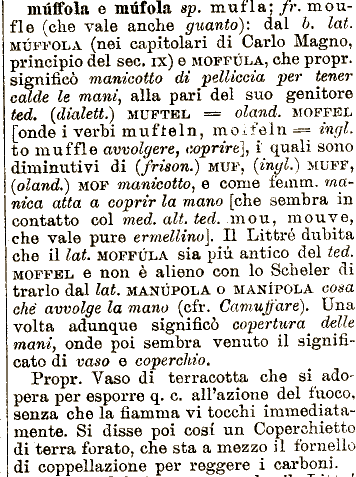 múffola e múfola sp. mufla; fr. mou-
fle (che vale anche guanto): dal b. lat.
MÚFFOLA (nei capitolari di Carlo Magno,
principio del sec. IX) e MOFFÚLA, che propr.
significò manicotto di pelliccia per tener
calde le mani, alla pari del suo genitore
ted. (dialett.) MUFTEL = oland. MOFFEL
[onde i verbi mufteln, moffeln = ingl.
to muffle avvolgere, coprire], i quali sono
diminutivi di (frison.) MUF, (ingl.) MUFF,
(oland.) MOF manicotto, e come femm. ma-
nica atta a coprir la mano [che sembra in
contatto col med. alt. ted. mou, mouve,
che vale pure ermellino]. Il Littré dubita
che il lat. MOFFÚLA sia più antico del ted.
MOFFEL e non è alieno con lo Scheler di
trarlo dal lat. MANÚPOLA O MANÍPOLA cosa
che avvolge la mano (cfr. Camuffare). Una
volta adunque significò copertura delle
mani, onde poi sembra venuto il signifi-
cato di vaso e coperchio.
Propr. Vaso di terracotta che si ado-
pera per esporre q. c. all'azione del fuoco,
senza che la fiamma vi tocchi immediata-
mente. Si disse poi cosí un Coperchietto
di terra forato, che sta a mezzo il fornello
di coppellazione per reggere i carboni.